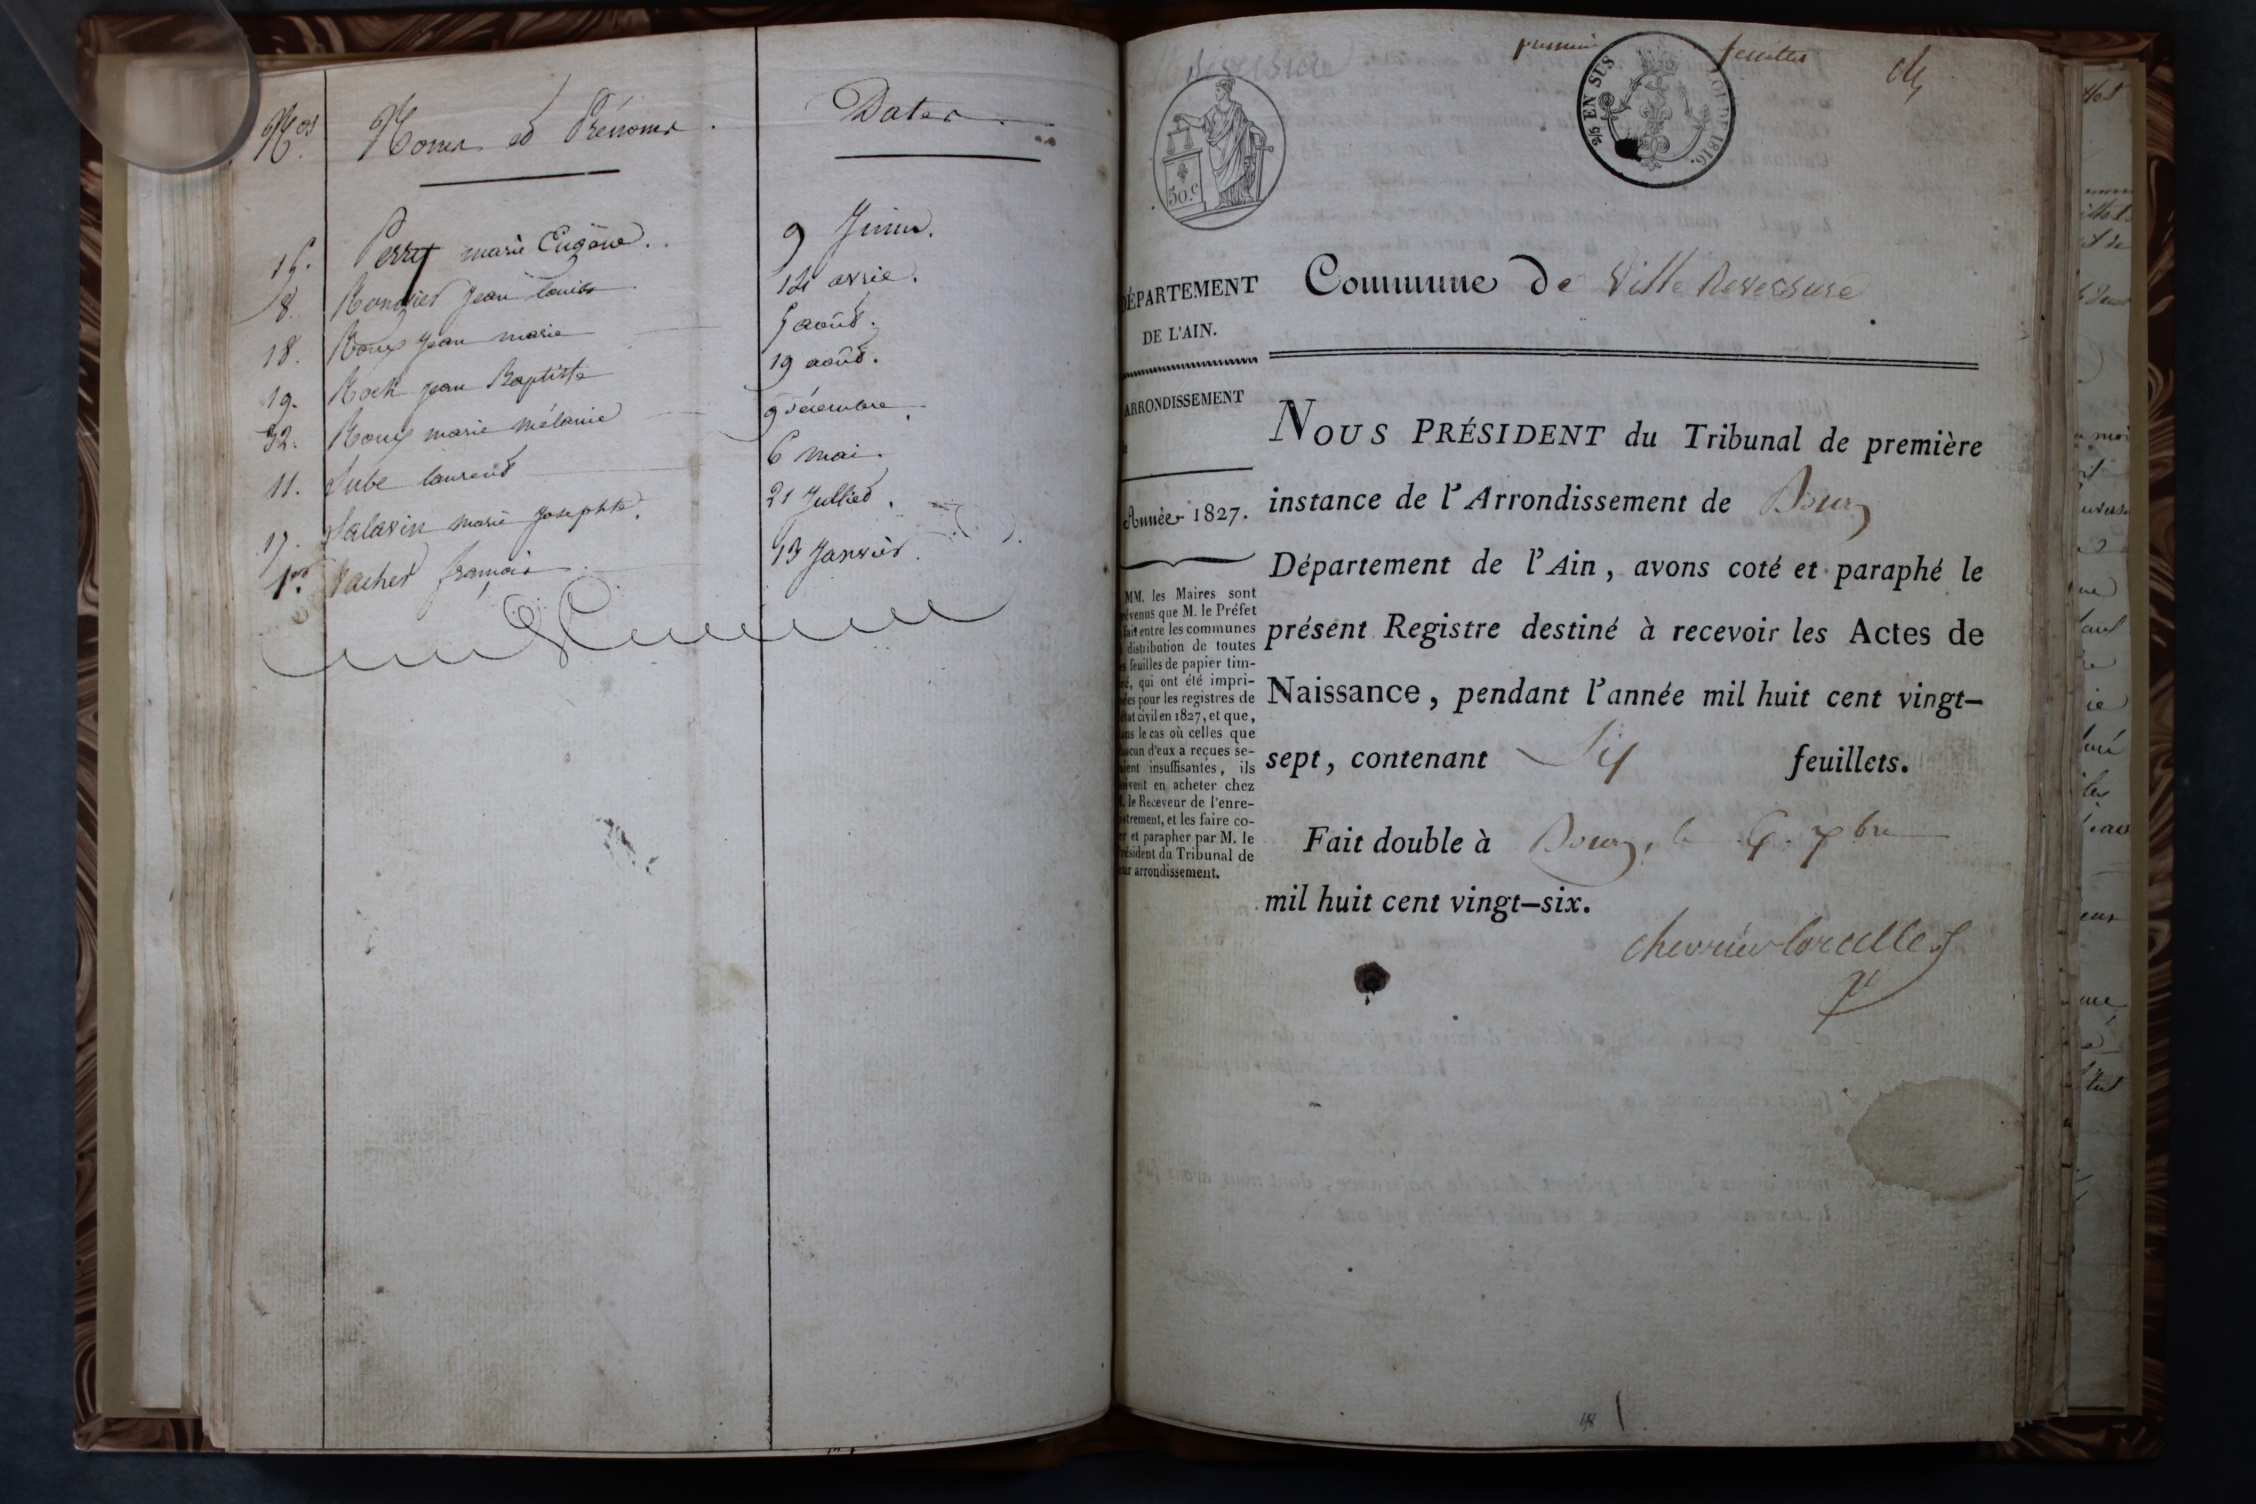 Nos Noms et Prénoms. Dates.
15. Perret marie Eugène. 9 Juin.
8. Rongier Jean louis 14 avril.
18. Roux Jean marie 5 août.
19. Roch jean Baptiste 19 août.
32. Roux marie mélanie 9 décembre.
11. Sube laurent 6 mai.
17. Salavin marie Josephte. 21 Juillet.
1er Vacher françois 13 Janvier.
premier feuillet
2/6 EN SUS LOI DE 1816.
50.c
DÉPARTEMENT
DE L'AIN.
Commune de Ville Reversure
ARRONDISSEMENT
Année 1827.
MM. les Maires sont
prévenus que M. le Préfet
fait entre les communes
distribution de toutes
les feuilles de papier tim-
bré, qui ont été impri-
mées pour les registres de
l'état civil en 1827, et que,
dans le cas où celles que
chacun d'eux a reçues se-
raient insuffisantes, ils
doivent en acheter chez
M. le Receveur de l'enre-
gistrement, et les faire co-
ter et parapher par M. le
Président du Tribunal de
leur arrondissement.
NOUS PRÉSIDENT du Tribunal de première
instance de l'Arrondissement de Bourg
Département de l'Ain, avons coté et paraphé le
présent Registre destiné à recevoir les Actes de
Naissance, pendant l'année mil huit cent vingt-
sept, contenant Six feuillets.
Fait double à Bourg, le 7bre
mil huit cent vingt-six.